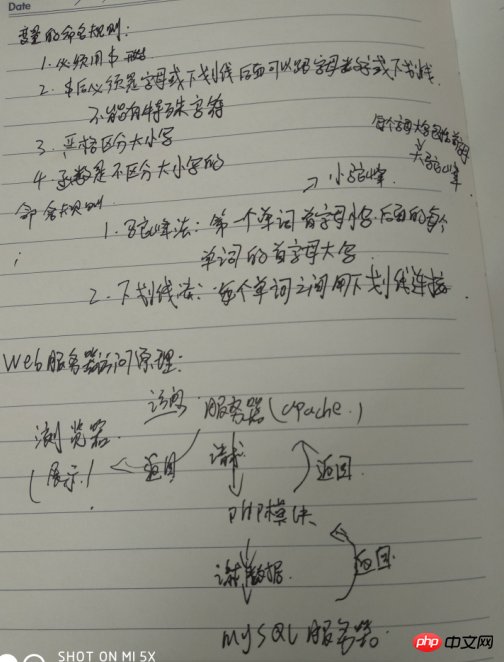 Date
变量的命名规则:
1. 必须用$开头
2. $后必须是字母或下划线 后面可以跟字母数字或下划线
不能有特殊字符
3. 严格区分大小写
4. 函数是不区分大小写的
每个单词大写首字母
大驼峰
命名规则
小驼峰
1. 驼峰法: 第一个单词首字母小写 后面的每个
单词的首字母大写
2. 下划线法: 每个单词之间用下划线连接
Web服务器访问原理:
访问 服务器(apache)
浏览器
(展示)
返回
请求
返回
PHP模块
数据
返回
MySQL服务器
SHOT ON MI 5X
php中文网